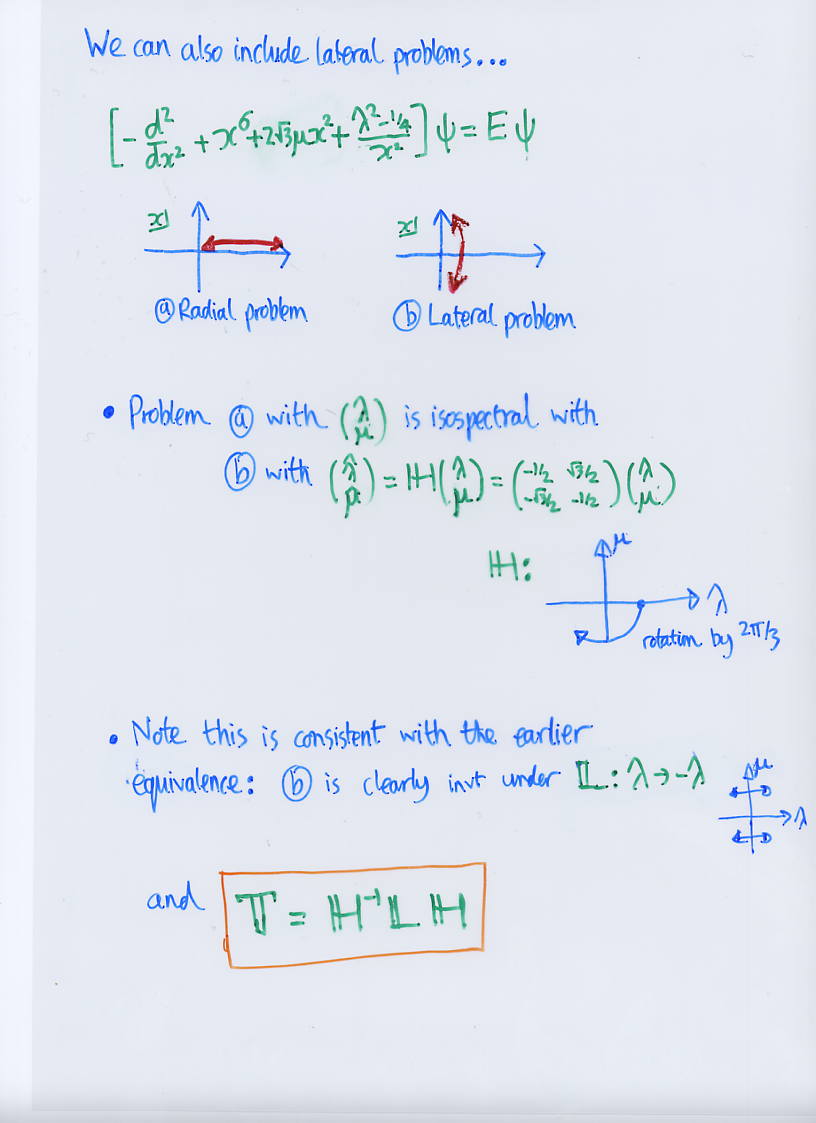 We can also include lateral problems...
[-d²/dx² + x⁶ + 2√3μx² + (λ²-1/4)/x²] ψ = E ψ
x
x
ⓐ Radial problem
ⓑ Lateral problem
• Problem ⓐ with (λ μ) is isospectral with
ⓑ with (λ̂ μ̂) = ℍ(λ μ) = (-1/2 √3/2 -√3/2 -1/2)(λ μ)
ℍ:
μ
λ
rotation by 2π/3
• Note this is consistent with the earlier
equivalence: ⓑ is clearly invt under 𝕃: λ → -λ
μ
λ
and 𝕋 = ℍ⁻¹ 𝕃 ℍ